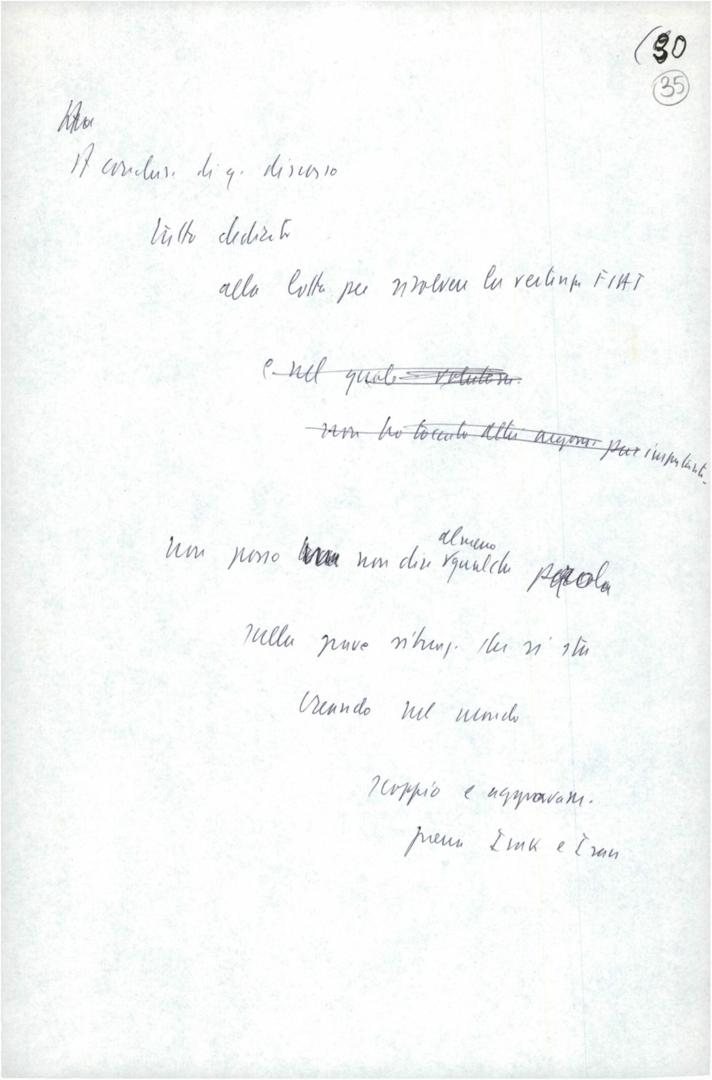 (30
35
A conclus. di q. discorso
tutto dedicato
alla lotta per risolvere la vertenza FIAT
e nel quale
non ho toccato altri argom. pur importanti
almeno
non posso non dire qualche parola
sulla grave situaz. che si sta
creando nel mondo
scoppio e aggravam.
guerra Irak e Iran